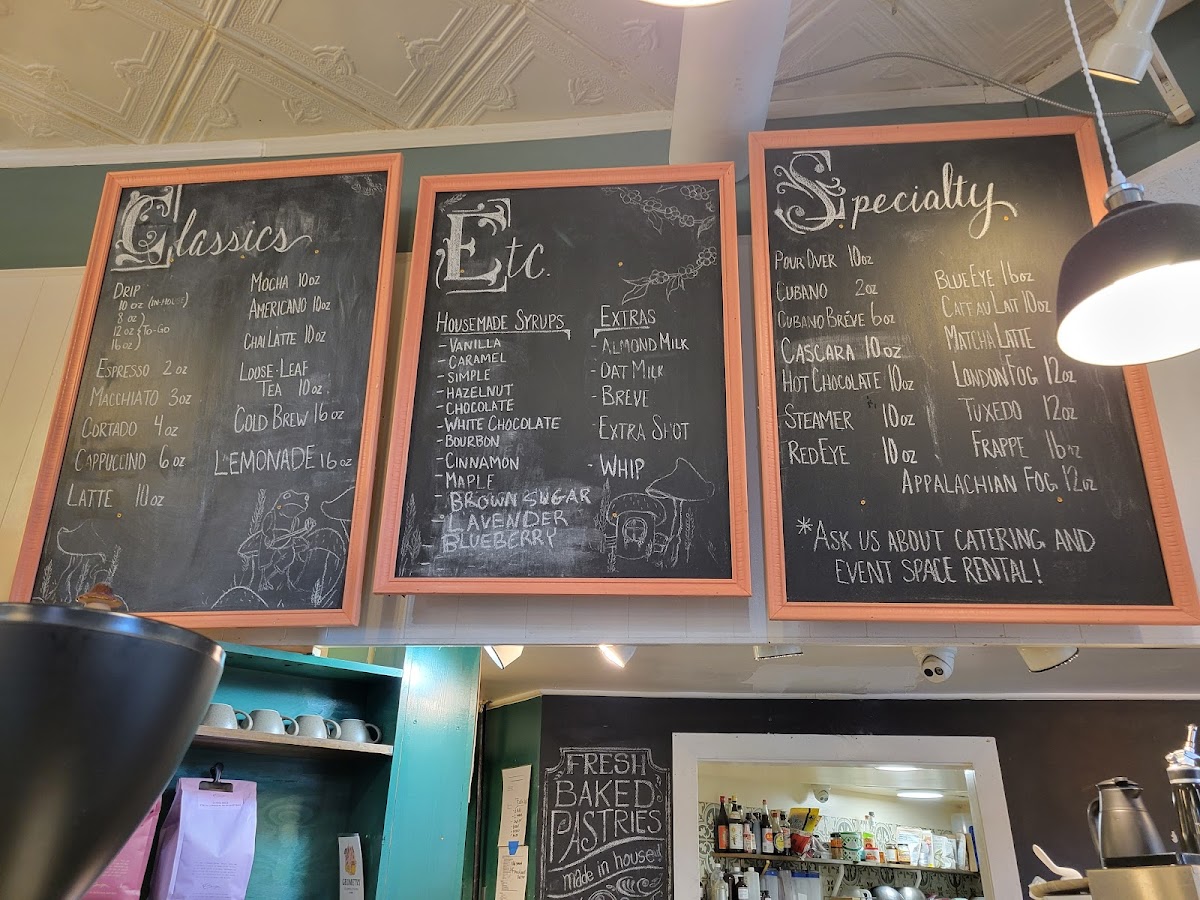 Classics
DRIP
10 OZ (IN-HOUSE)
8 OZ
12 OZ TO-GO
16 OZ
ESPRESSO 2 OZ
MACCHIATO 3OZ
CORTADO 4 OZ
CAPPUCCINO 6 OZ
LATTE 10 OZ
MOCHA 10 OZ
AMERICANO 10OZ
CHAI LATTE 10OZ
LOOSE-LEAF
TEA 10OZ
COLD BREW 16 OZ
LEMONADE 16 OZ
Etc.
HOUSEMADE SYRUPS
- VANILLA
- CARAMEL
- SIMPLE
- HAZELNUT
- CHOCOLATE
- WHITE CHOCOLATE
- BOURBON
- CINNAMON
- MAPLE
- BROWN SUGAR
- LAVENDER
BLUEBERRY
EXTRAS
- ALMOND MILK
- OAT MILK
- BREVE
- EXTRA SHOT
- WHIP
Specialty
POUR OVER 10OZ
CUBANO 2OZ
CUBANO BRÉVE 6OZ
CASCARA 10OZ
HOT CHOCOLATE 10OZ
STEAMER 10OZ
REDEYE 10OZ
BLUEEYE 16OZ
CAFE AU LAIT 10OZ
MATCHA LATTE
LONDON FOG 12OZ
TUXEDO 12OZ
FRAPPE 16OZ
APPALACHIAN FOG 12OZ
*ASK US ABOUT CATERING AND
EVENT SPACE RENTAL!
FRESH
BAKED
PASTRIES
made in house